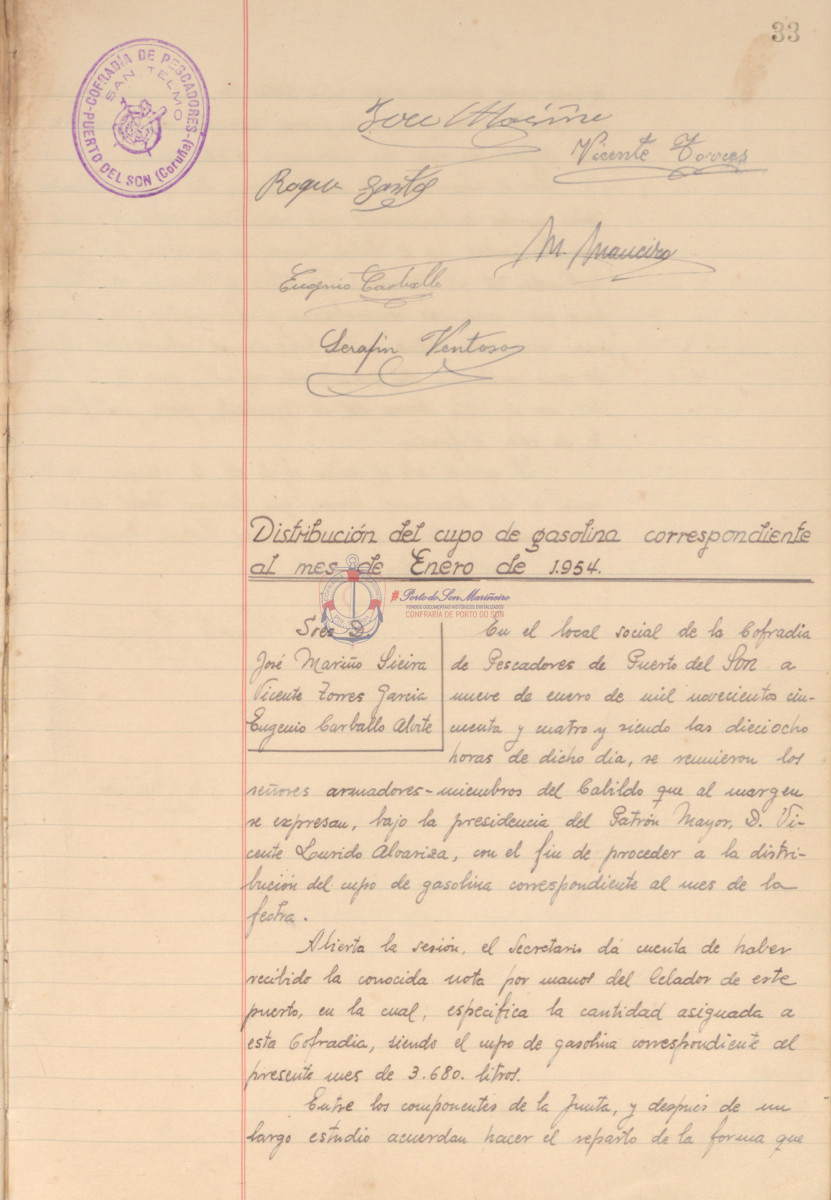 33
COFRADÍA DE PESCADORES
SAN TELMO
PUERTO DEL SON (Coruña)
Jose Mariño
Vicente Torres
Roque Santos
M. Maneiro
Eugenio Carballo
Serafin Ventoso
Distribución del cupo de gasolina correspondiente
al mes de Enero de 1.954.
#Porto do Son Mariñeiro
FONDOS DOCUMENTAIS HISTÓRICOS DIXITALIZADOS
CONFRARÍA DE PORTO DO SON
Sres D.
José Mariño Sieira
Vicente Torres Garcia
Eugenio Carballo Alvite
En el local social de la Cofradia
de Pescadores de Puerto del Son a
nueve de enero de mil novecientos cin-
cuenta y cuatro y siendo las dieciocho
horas de dicho dia, se reunieron los
señores armadores-miembros del Cabildo que al margen
se expresan, bajo la presidencia del Patrón Mayor, D. Vi-
cente Lurido Alvariza, con el fin de proceder a la distri-
bución del cupo de gasolina correspondiente al mes de la
fecha.
Abierta la sesión, el Secretario dá cuenta de haber
recibido la conocida nota por manos del Celador de este
puerto, en la cual, especifica la cantidad asignada a
esta Cofradia, siendo el cupo de gasolina correspondiente al
presente mes de 3.680. litros.
Entre los componentes de la Junta, y después de un
largo estudio acuerdan hacer el reparto de la forma que